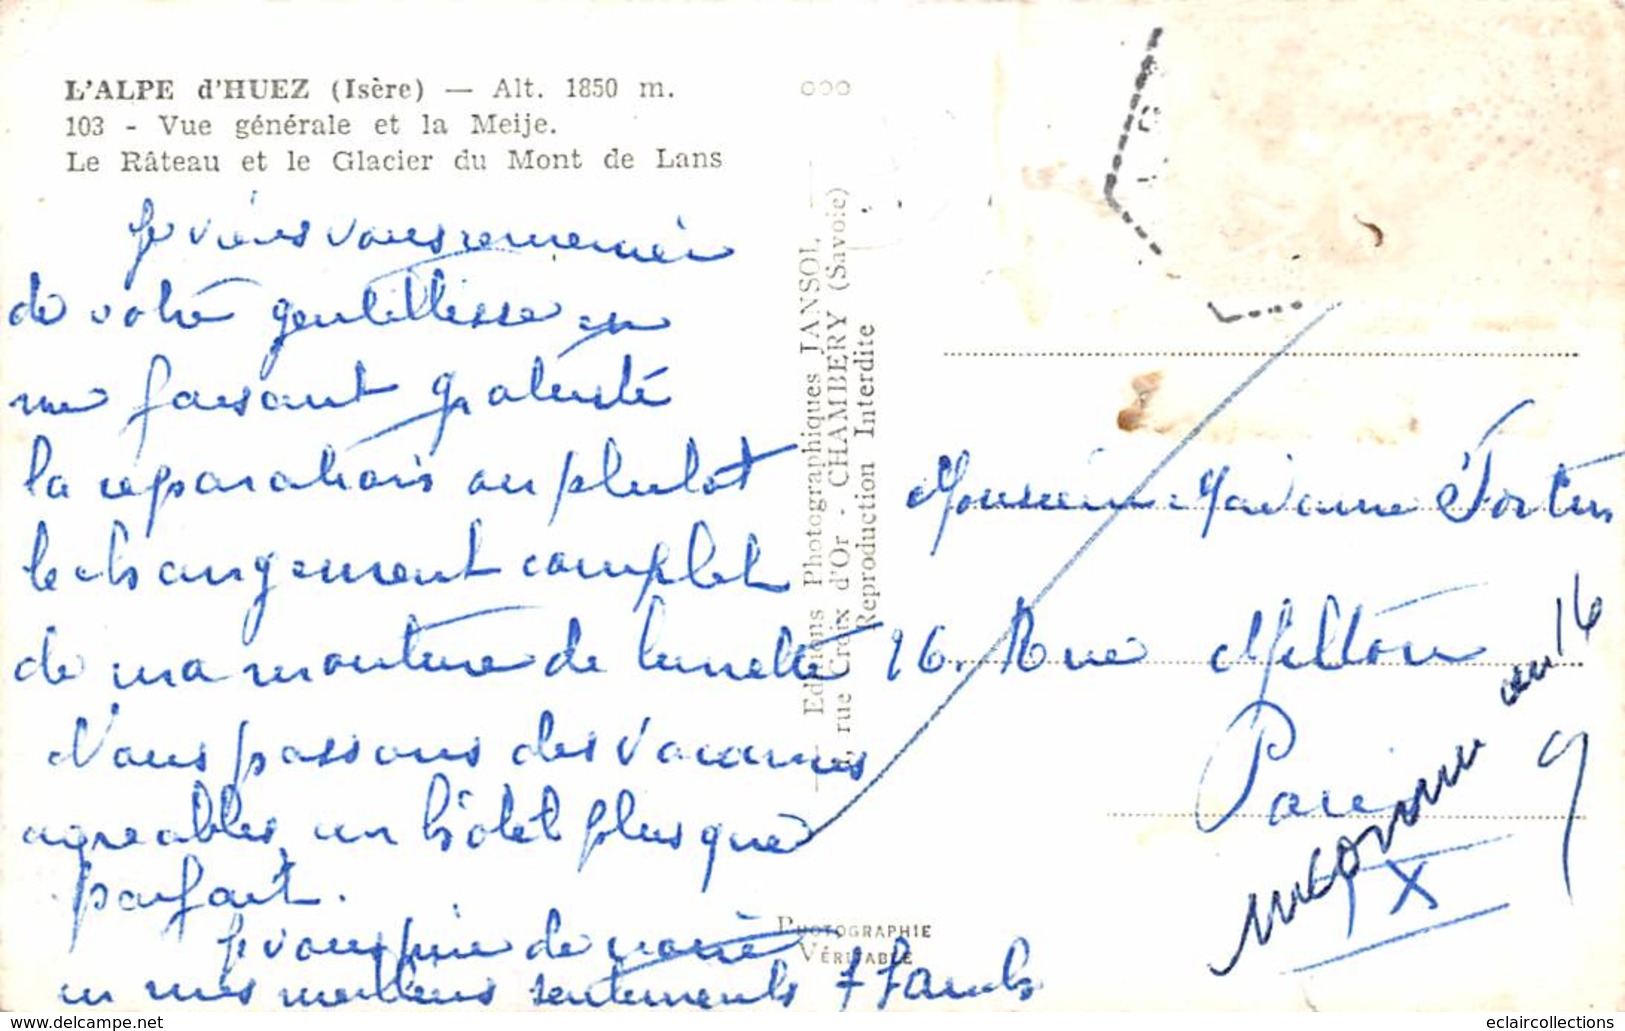 L'ALPE d'HUEZ (Isère) — Alt. 1850 m.
103 - Vue générale et la Meije.
Le Râteau et le Glacier du Mont de Lans
Je viens vous remercier
de votre gentillesse en
me faisant gratuité
la réparations ou plutot
le changement complet
de ma monture de lunette
Nous passons des vacances
agréables, un hôtel plus que
parfait.
Je vous prie de
en mes meilleurs sentements
Editions Photographiques JANSOL
rue Croix d'Or - CHAMBÉRY (Savoie)
Reproduction Interdite
PHOTOGRAPHIE
VÉRITABLE
Monsieur Madame Fortin
26. Rue Milton
Paris
IX
inconnu au 16
eclaircollections
www.delcampe.net